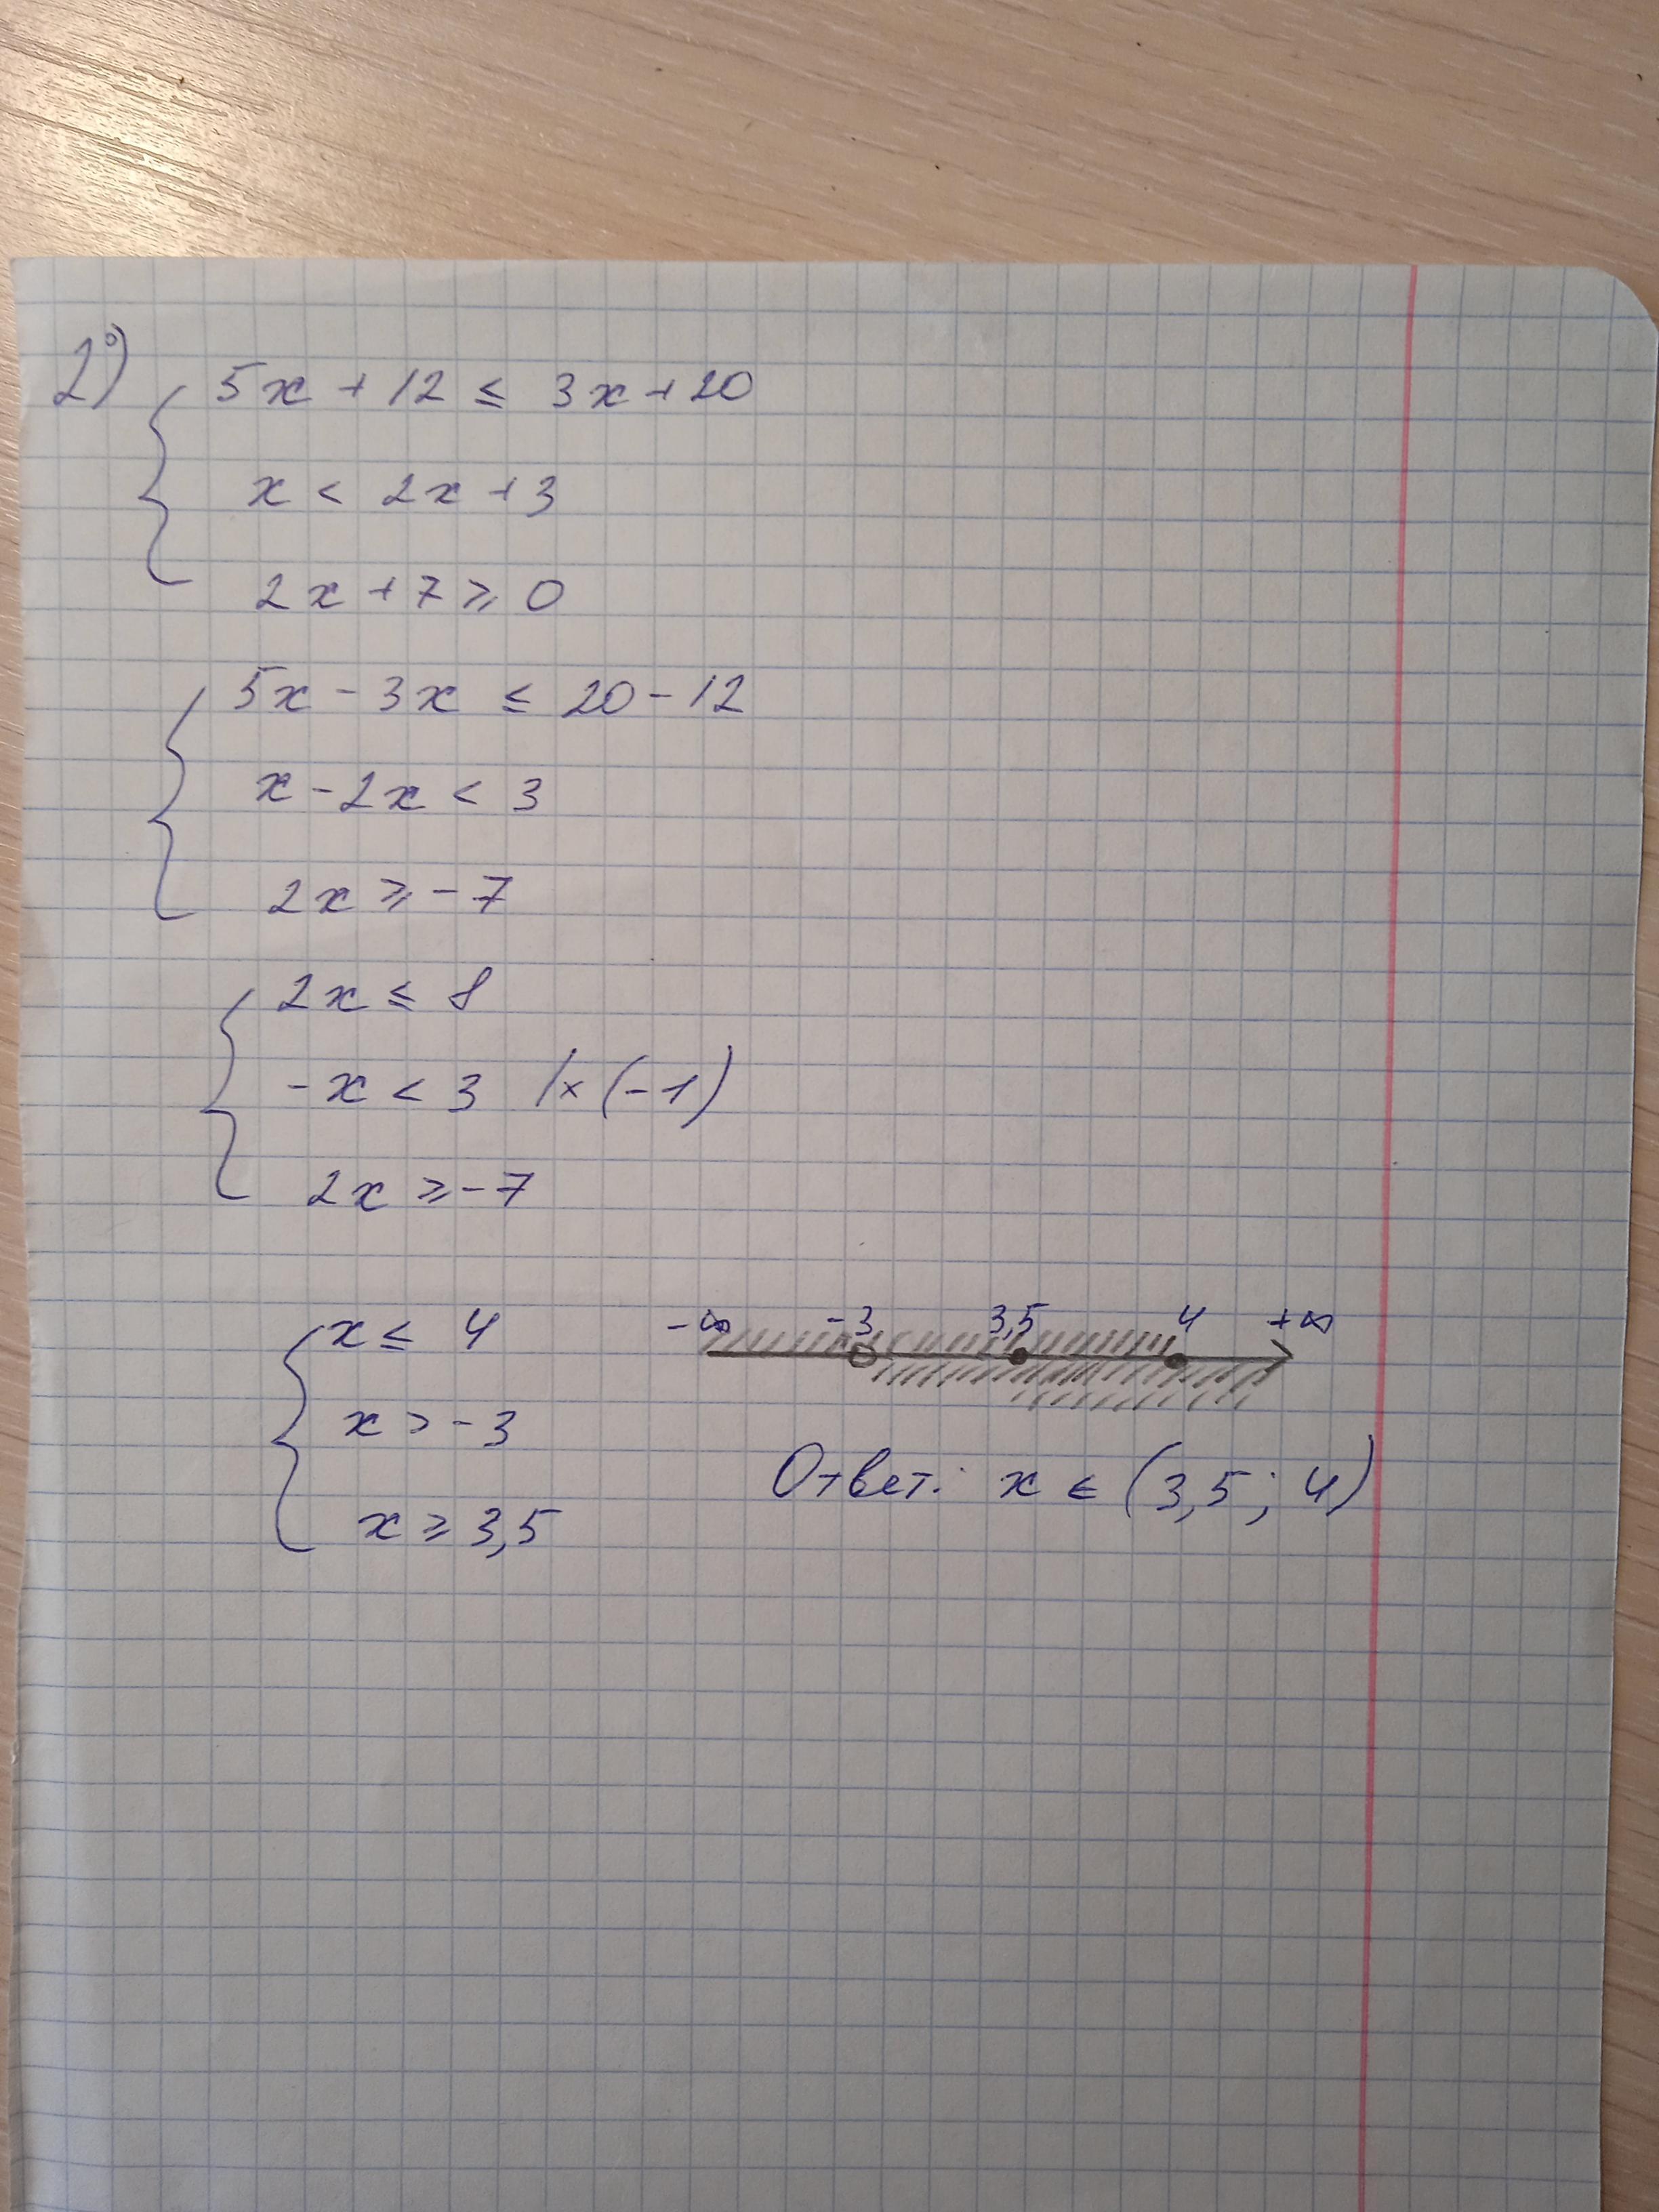 2°)
5x + 12 ≤ 3x + 20
x < 2x + 3
2x + 7 ≥ 0
5x - 3x ≤ 20 - 12
x - 2x < 3
2x ≥ -7
2x ≤ 8
-x < 3 |× (-1)
2x ≥ -7
x ≤ 4
x > -3
x ≥ 3,5
-∞ -3 3,5 4 +∞
Ответ: x ∈ (3,5; 4)